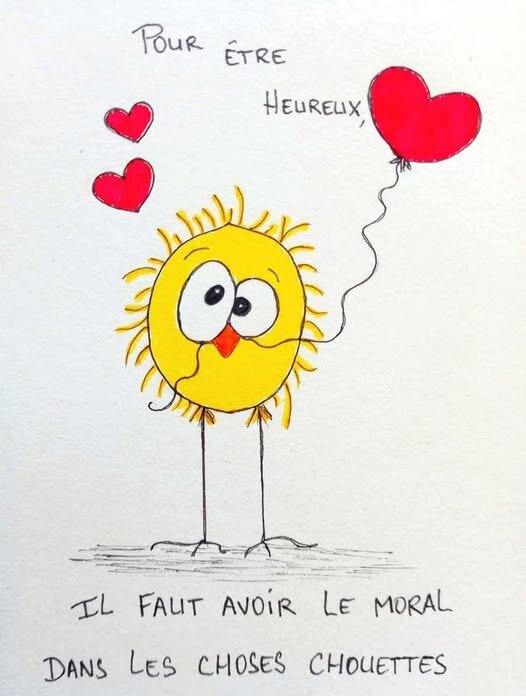 POUR ÊTRE
HEUREUX,
IL FAUT AVOIR LE MORAL
DANS LES CHOSES CHOUETTES